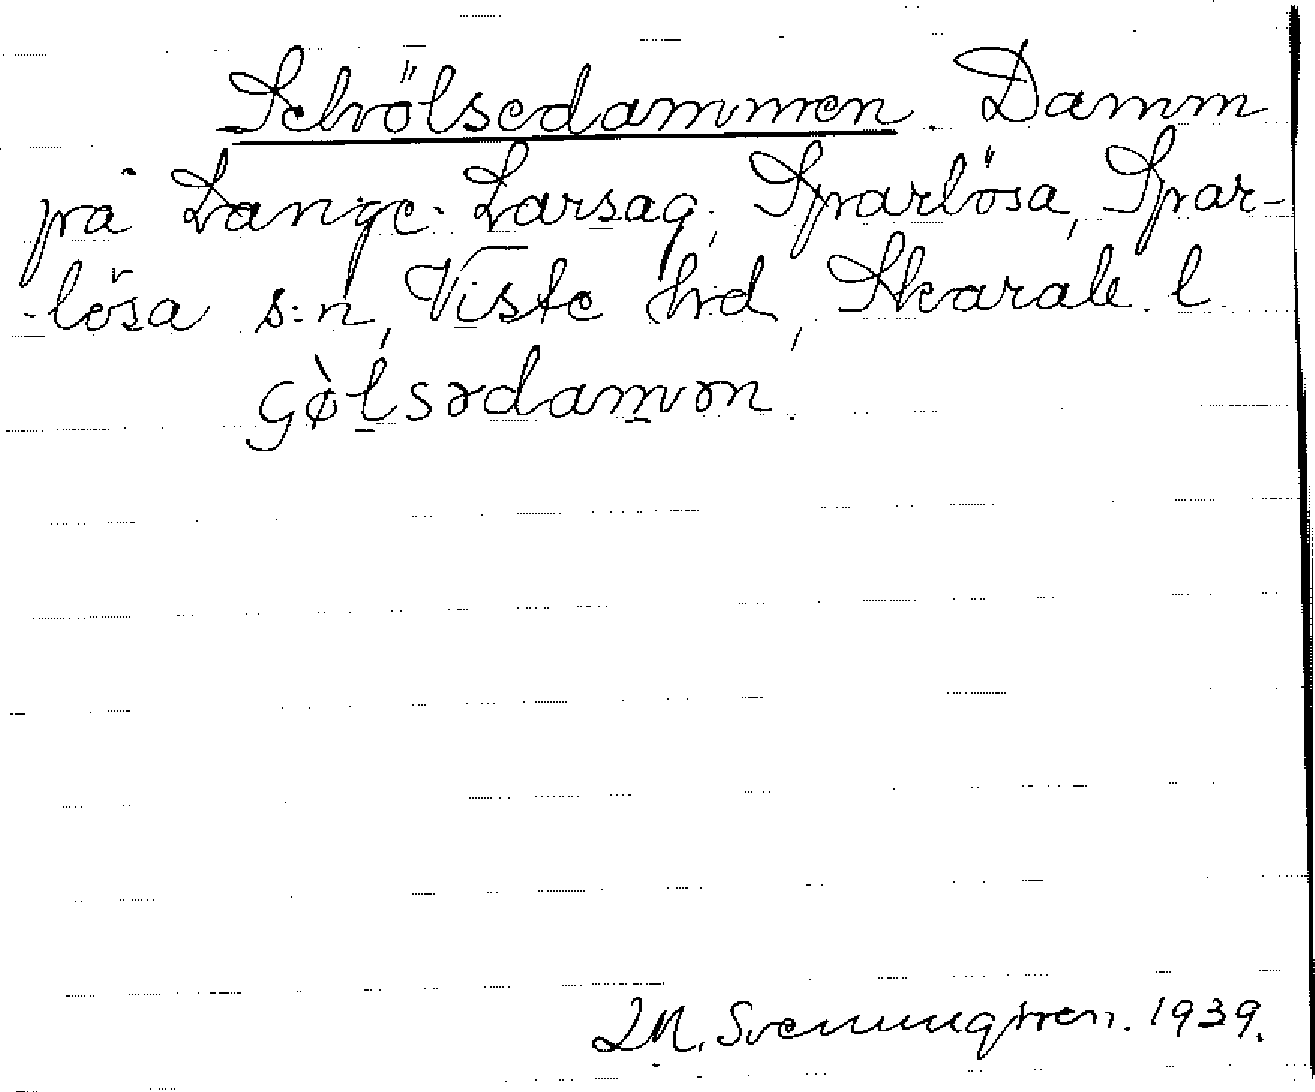 Schölsedammen. Damm
på Lange-Larsag, Sparlösa, Spar-
lösa s:n, Viste hrd, Skarab. l
gø̀lsədamən.
LM. Svenungsson. 1939.